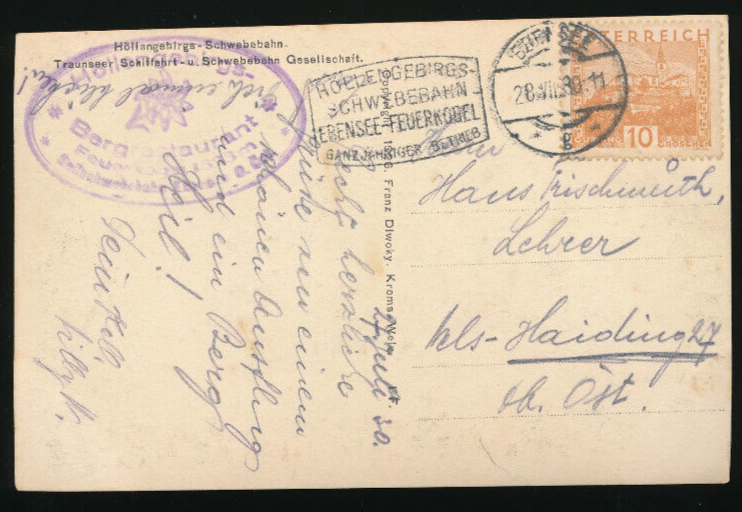 Höllangebirgs-Schwebebahn.
Traunseer Schiffahrt- u. Schwebebahn Gesellschaft.
Bergrestaurant
Feuerkogel
HÖLLENGEBIRGS-
SCHWEBEBAHN
EBENSEE-FEUERKOGEL
GANZJÄHRIGER BETRIEB
EBENSEE
28.VII.30.11
* g *
ÖSTERREICH
10
GROSCHEN
Copyright Franz Dlwoky, Krems-Wolw.
Herrn
Hans Frischmuth,
Lehrer
Wels-Haiding 27
Ob. Öst.
Juli 30.
Recht herzliche
Grüße von einem
schönen Ausflug
und ein Berg
Heil!
einmal